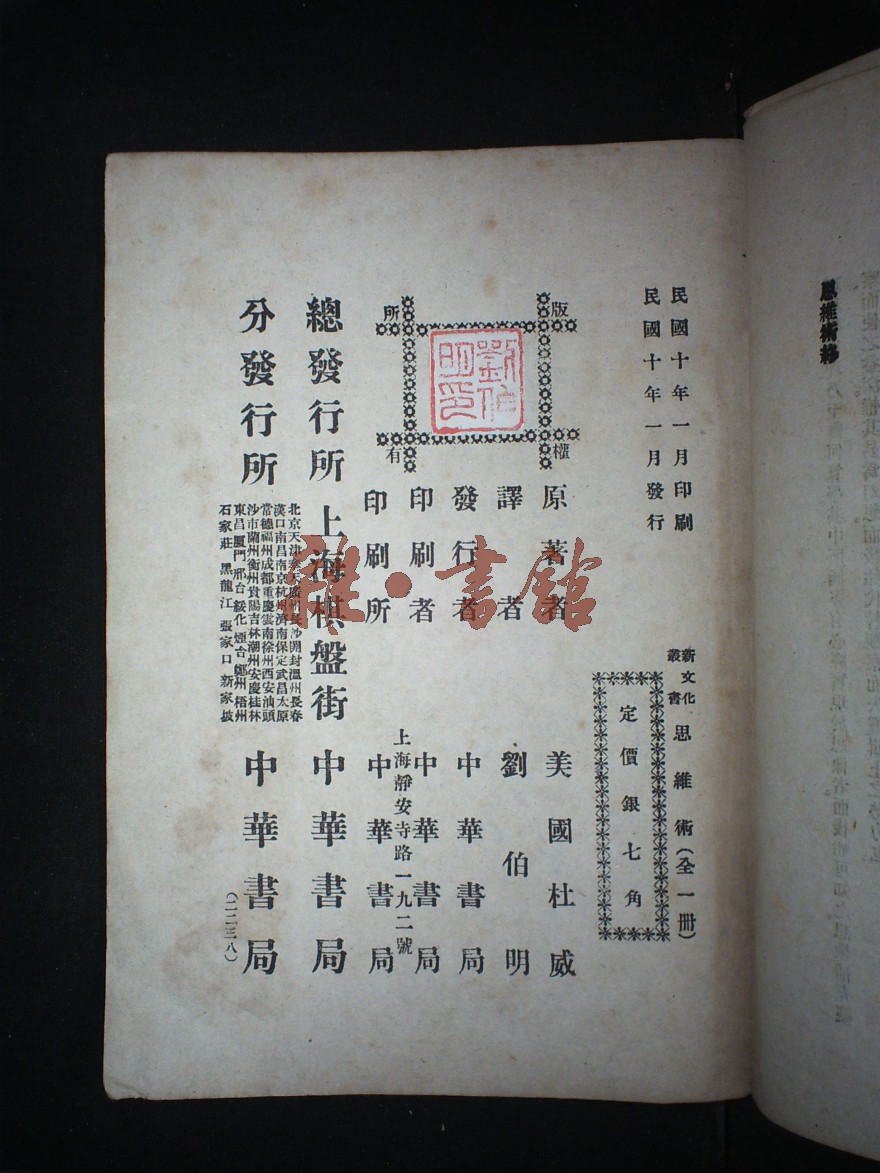 思維術終
民國十年一月印刷
民國十年一月發行
新文化叢書
思維術(全一冊)
定價銀七角
版權所有
劉伯明印
原著者 美國杜威
譯者 劉伯明
發行者 中華書局
印刷者 中華書局
印刷所 上海靜安寺路一九二號 中華書局
總發行所 上海棋盤街 中華書局
分發行所
北京天津奉天廣州長沙開封溫州長春
漢口南昌南京杭州濟南保定武昌太原
常德福州成都重慶雲南徐州西安汕頭
沙市蘭州衡州貴陽吉林潮州安慶桂林
東昌厦門邢台綏化煙台鄭州梧州
石家莊 黑龍江 張家口 新家坡
中華書局
(二二三八)
雅·書館